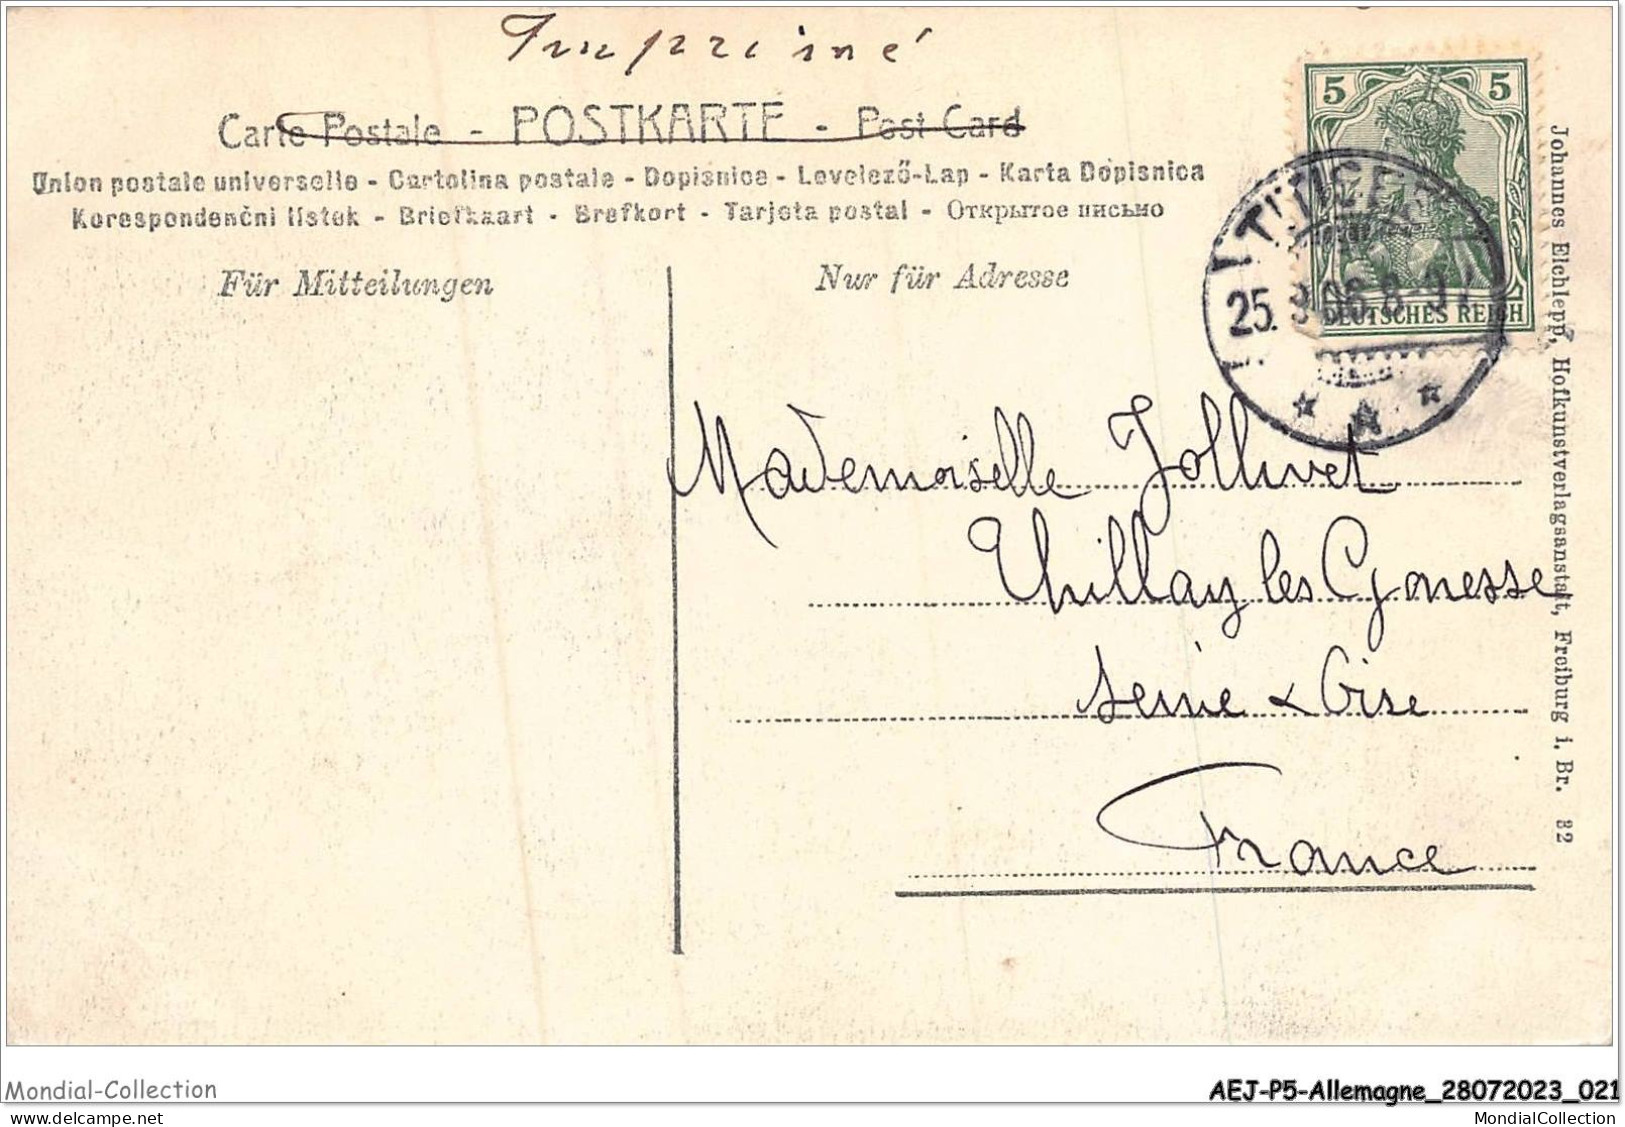 Imprimé
Carte Postale - POSTKARTE - Post Card
Union postale universelle - Cartolina postale - Dopisnice - Levelező-Lap - Karta Dopisnica
Korespondenční lístek - Briefkaart - Brefkort - Tarjeta postal - Открытое письмо
Für Mitteilungen
Nur für Adresse
5 5
DEUTSCHES REICH
25. 8-9
Mademoiselle Jollivet
Thillay les Gonesse
Seine & Oise
France
Johannes Elchlepp, Hofkunstverlagsanstalt, Freiburg i. Br. 32
Mondial-Collection
AEJ-P5-Allemagne_28072023_021
delcampe.net
MondialCollection